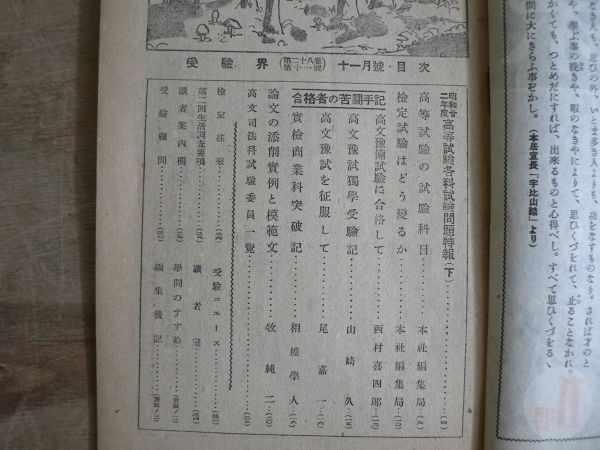 受驗界（第二十八卷第十一號）十一月號・目次
昭和廿二年度高等試驗各科試論問題特報（下）
高等試驗の試驗科目 本社編集局
檢定試驗はどう變るか 本社編集局
合格者の苦鬪手記
高文豫備試驗に合格して 西村喜四郎
高文豫試獨學受驗記 山崎久
高文豫試を征服して 足嘉一
實檢商業科突破記 相模學人
論文の添削實例と模範文 牧純二
高文司法科試驗委員一覽
檢定往來
受驗ニュース
第二回生活調査要項
讀者室
讀者案內欄
學問のすすめ
受驗顧問
編集後記
なき人も、思ひの外、いと多き人よりも、功をなすものなり。されば才のと
や、學ぶ事の晩きや、暇のなきやによりて、思ひくづをれて、止ることなかれ。
かくても、つとめだにすれば、出來るものと心得べし。すべて思ひくづをるゝ
問に大にきらふ事ぞかし。（本居宣長「宇比山踏」より）